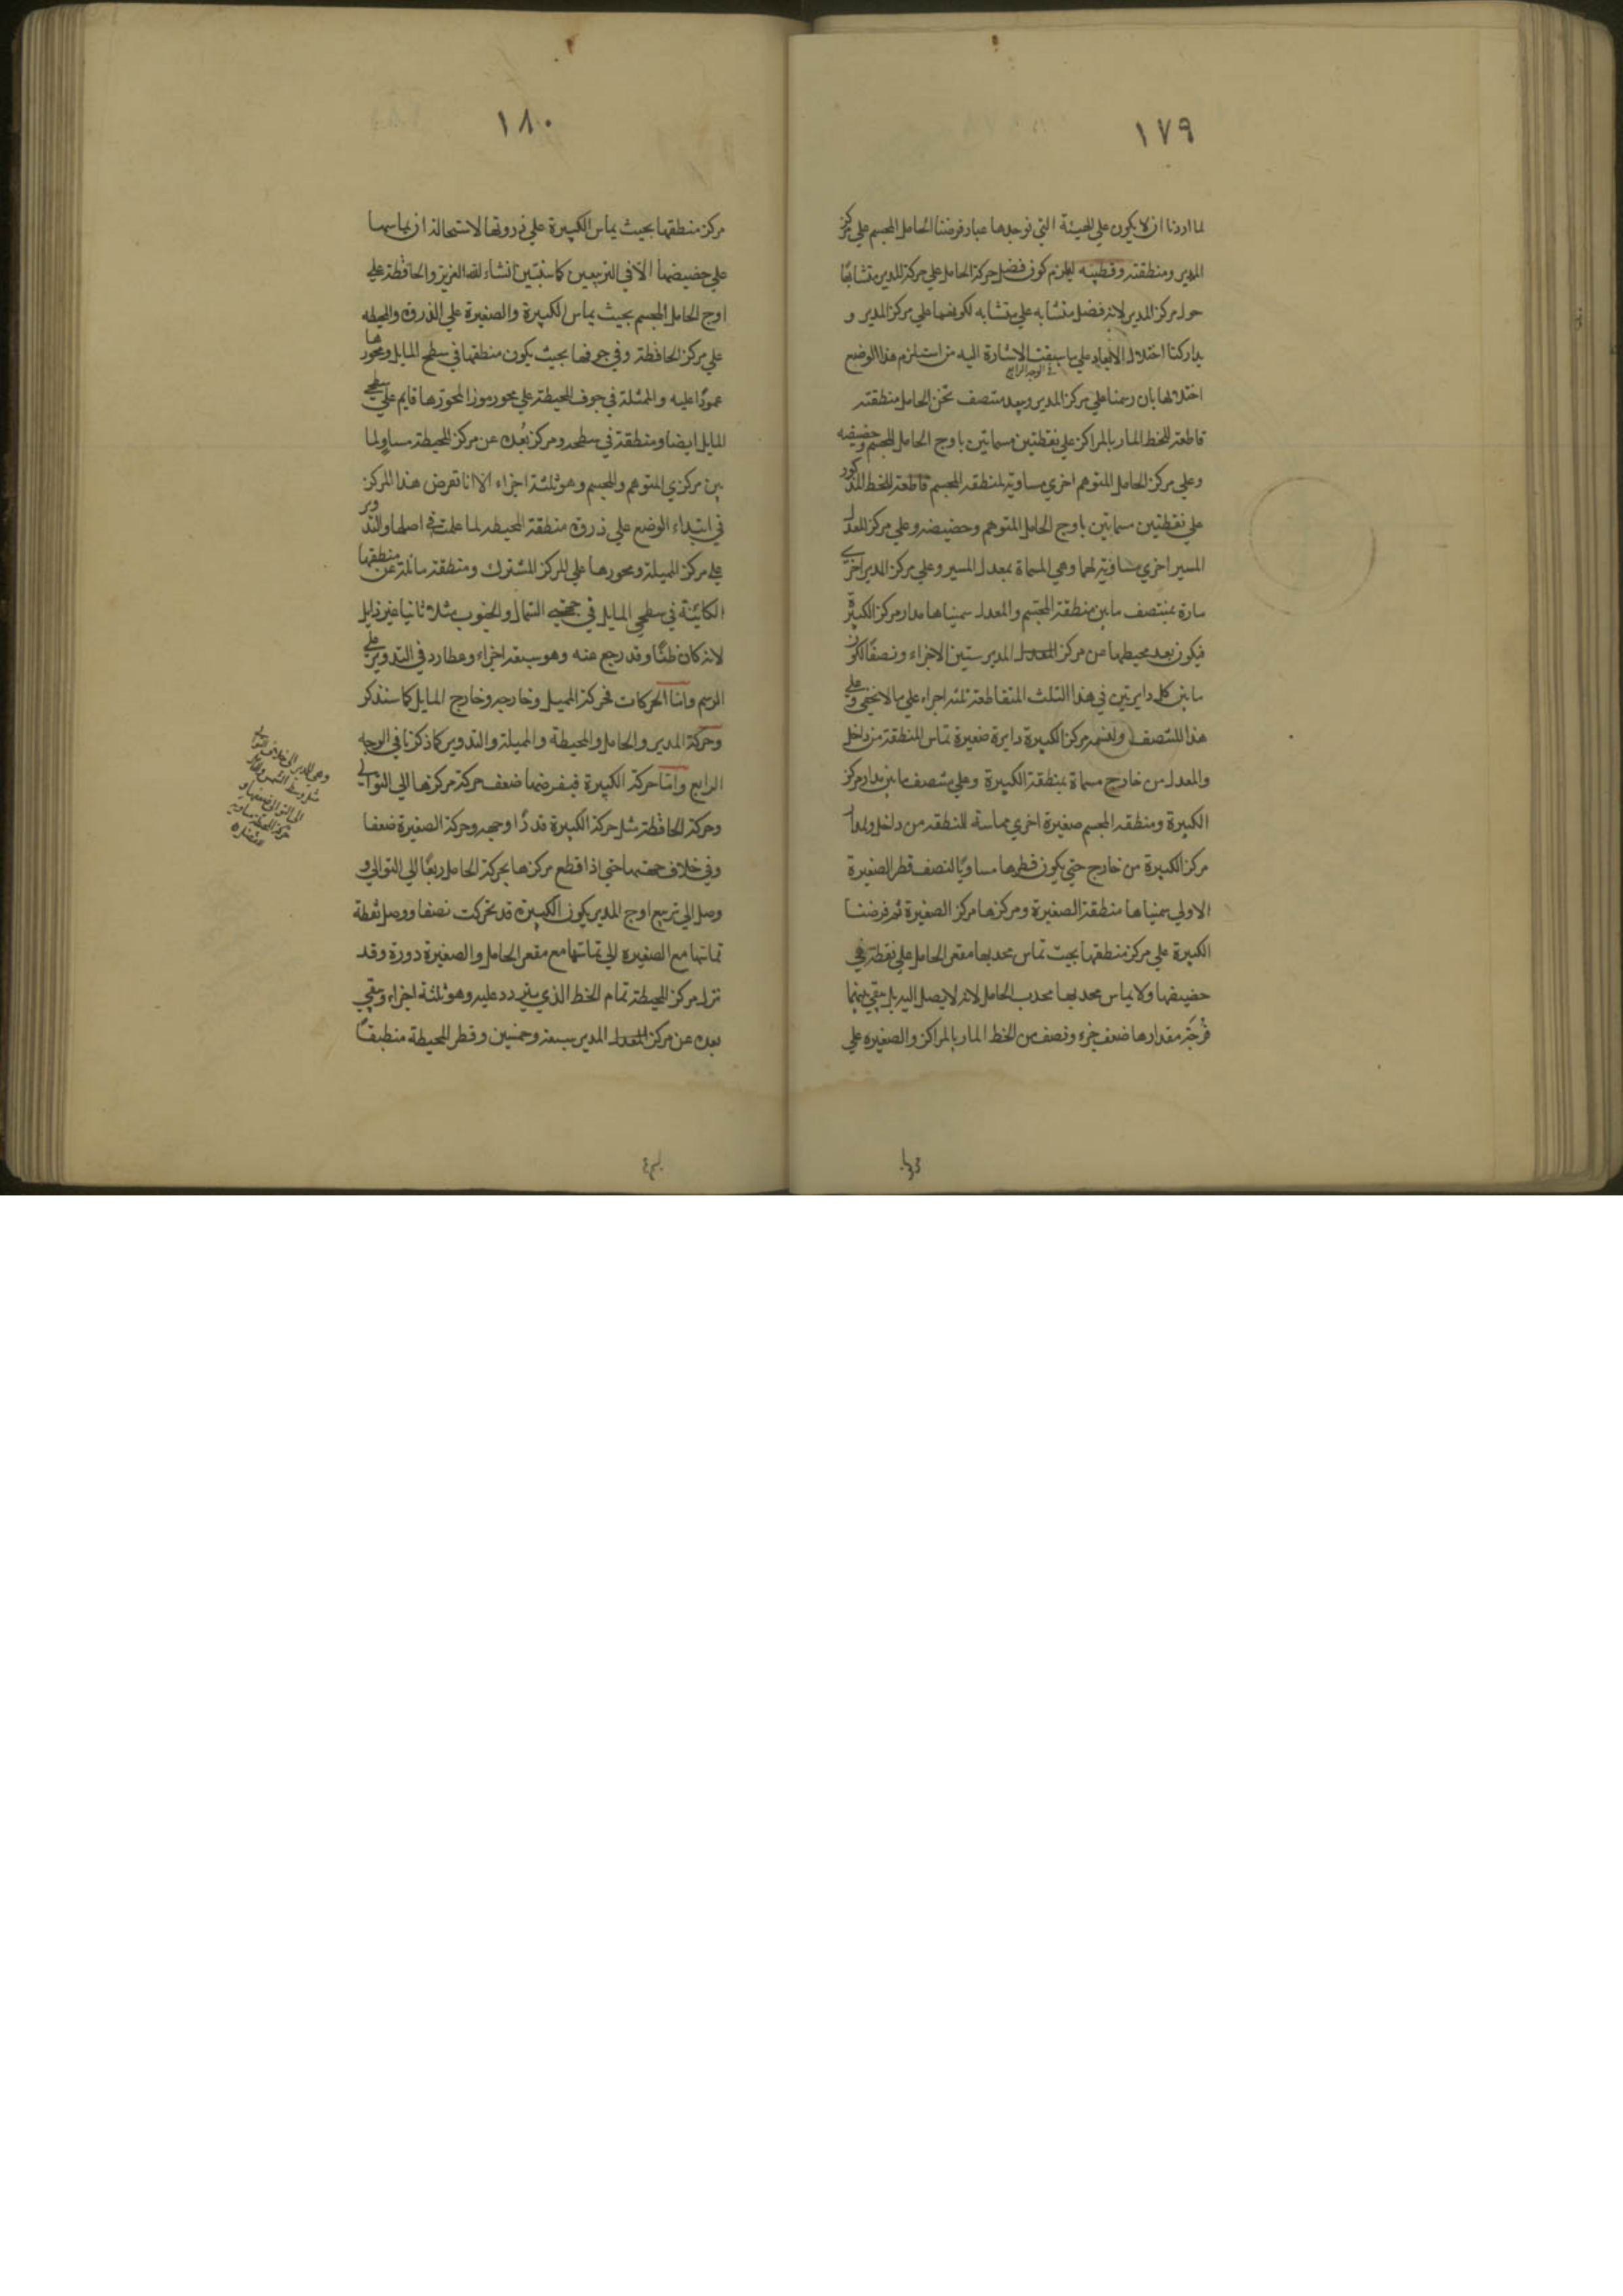 ١٧٩
لما اردنا ان لا يكون علي الهيئة التي نوجدها عبار فرضنا الحامل المجسم علي مركز
المدير ومنطقته وقطبيه ليلزم كون فضل حركة الحامل علي حركة المدير متشابها
حول مركز المدير لانه فضل متشابه علي متشابه لكونهما علي مركز المدير و
تداركنا اختلال الابعاد علي ما سبقت الاشارة اليه من استلزم هذا الوضع
في الوجه الرابع
اختلالها بان رسمنا علي مركز المدير وببعد منتصف ثخن الحامل منطقته
قاطعة للخط المار بالمراكز علي نقطتين مسماتين باوج الحامل المجسم وحضيضه
وعلي مركز الحامل المتوهم اخري مساوية لمنطقة المجسم قاطعة للخط المذكور
علي نقطتين مسماتين باوج الحامل المتوهم وحضيضه وعلي مركز المعدل
المسير اخري مساوية لهما وهي المسماة بمعدل المسير وعلي مركز المدير اخري
مارة بمنتصف ما بين منطقة المجسم والمعدل سميناها مدار مركز الكبيرة
فيكون بعد محيطها عن مركز المعدل المدير ستين الاجزاء ونصفا لكون
ما بين كل دايرتين في هذا الثلث المتقاطعة ثلثه اجزاء علي ما لا يخفي وعلي
هذا المنتصف مركز الكبيرة دايرة صغيرة تماس المنطقة من داخل
والمعدل من خارج مسماة بمنطقة الكبيرة وعلي منتصف ما بين مدار مركز
الكبيرة ومنطقة المجسم صغيرة اخري مماسة للمنطقة من داخل ولمدار
مركز الكبيرة من خارج حتي يكون قطرها مساويا لنصف قطر الصغيرة
الاولي سميناها منطقة الصغيرة ومركزها مركز الصغيرة ثم فرضنا
الكبيرة علي مركز منطقتها بحيث تماس محدبها مقعر الحامل علي نقطة هي
حضيضها ولا يماس محدبها محدب الحامل لانه لا يصل اليه بل يبقي بينهما
فرجة مقدارها ضعف جزء ونصف من الخط المار بالمراكز والصغيرة علي
١٨٠
مركز منطقتها بحيث يماس الكبيرة علي ذروتها لاستحالة ان يماسها
علي حضيضها الا في التربيعين كما سنبين انشاء الله العزيز والحافظة علي
اوج الحامل المجسم بحيث يماس الكبيرة والصغيرة علي الذروة والمحيطه
علي مركز الحافظة وفي جوفها بحيث يكون منطقتها في سطح المايل ومحورها
عمودا عليه والممثلة في جوف المحيطة علي محور مواز لمحورها قايم علي سطح
المايل ايضا ومنطقة في سطحه ومركز بعده عن مركز المحيطة مساو لما
بين مركزي المتوهم والمجسم وهو ثلثة اجزاء الا انا نفرض هذا المركز
في ابتداء الوضع علي ذروة منطقة المحيطه لما علمت في اصلها والتدوير
علي مركز المميلة ومحورها علي المركز المشترك ومنطقة مائلة عن منطقتها
الكائنة في سطحي المايل في جهتي الشمال والجنوب ميلا ثانيا غير زايل
لانه كان ظنا وقد رجع عنه وهو سبعة اجزاء وعطارد في التدوير علي
الرسم واما الحركات فحركة المميل وخارجه وخارج المايل كما سنذكر
وحركة المدير والحامل والمحيطة والمميلة والتدوير كما ذكرنا في الوجه
الرابع واما حركة الكبيرة فيفرضها ضعف حركة مركزها الي التوالي
وحركة الحافظة مثل حركة الكبيرة قدرا وجهه وحركة الصغيرة ضعفا
وفي خلاف جهتهما حتي اذا قطع مركزها بحركة الحامل ربعا الي التوالي و
وصل الي تربيع اوج المدير يكون الكبيرة قد تحركت نصفا ووصل نقطة
تماسها مع الصغيرة الي تماسها مع مقعر الحامل والصغيرة دورة وقد
نزل مركز المحيطة تمام الخط الذي يتردد عليه وهو ثلثة اجزاء وبقي
بعده عن مركز المعدل المدير سبعة وخمسين وقطر المحيطة منطبقا